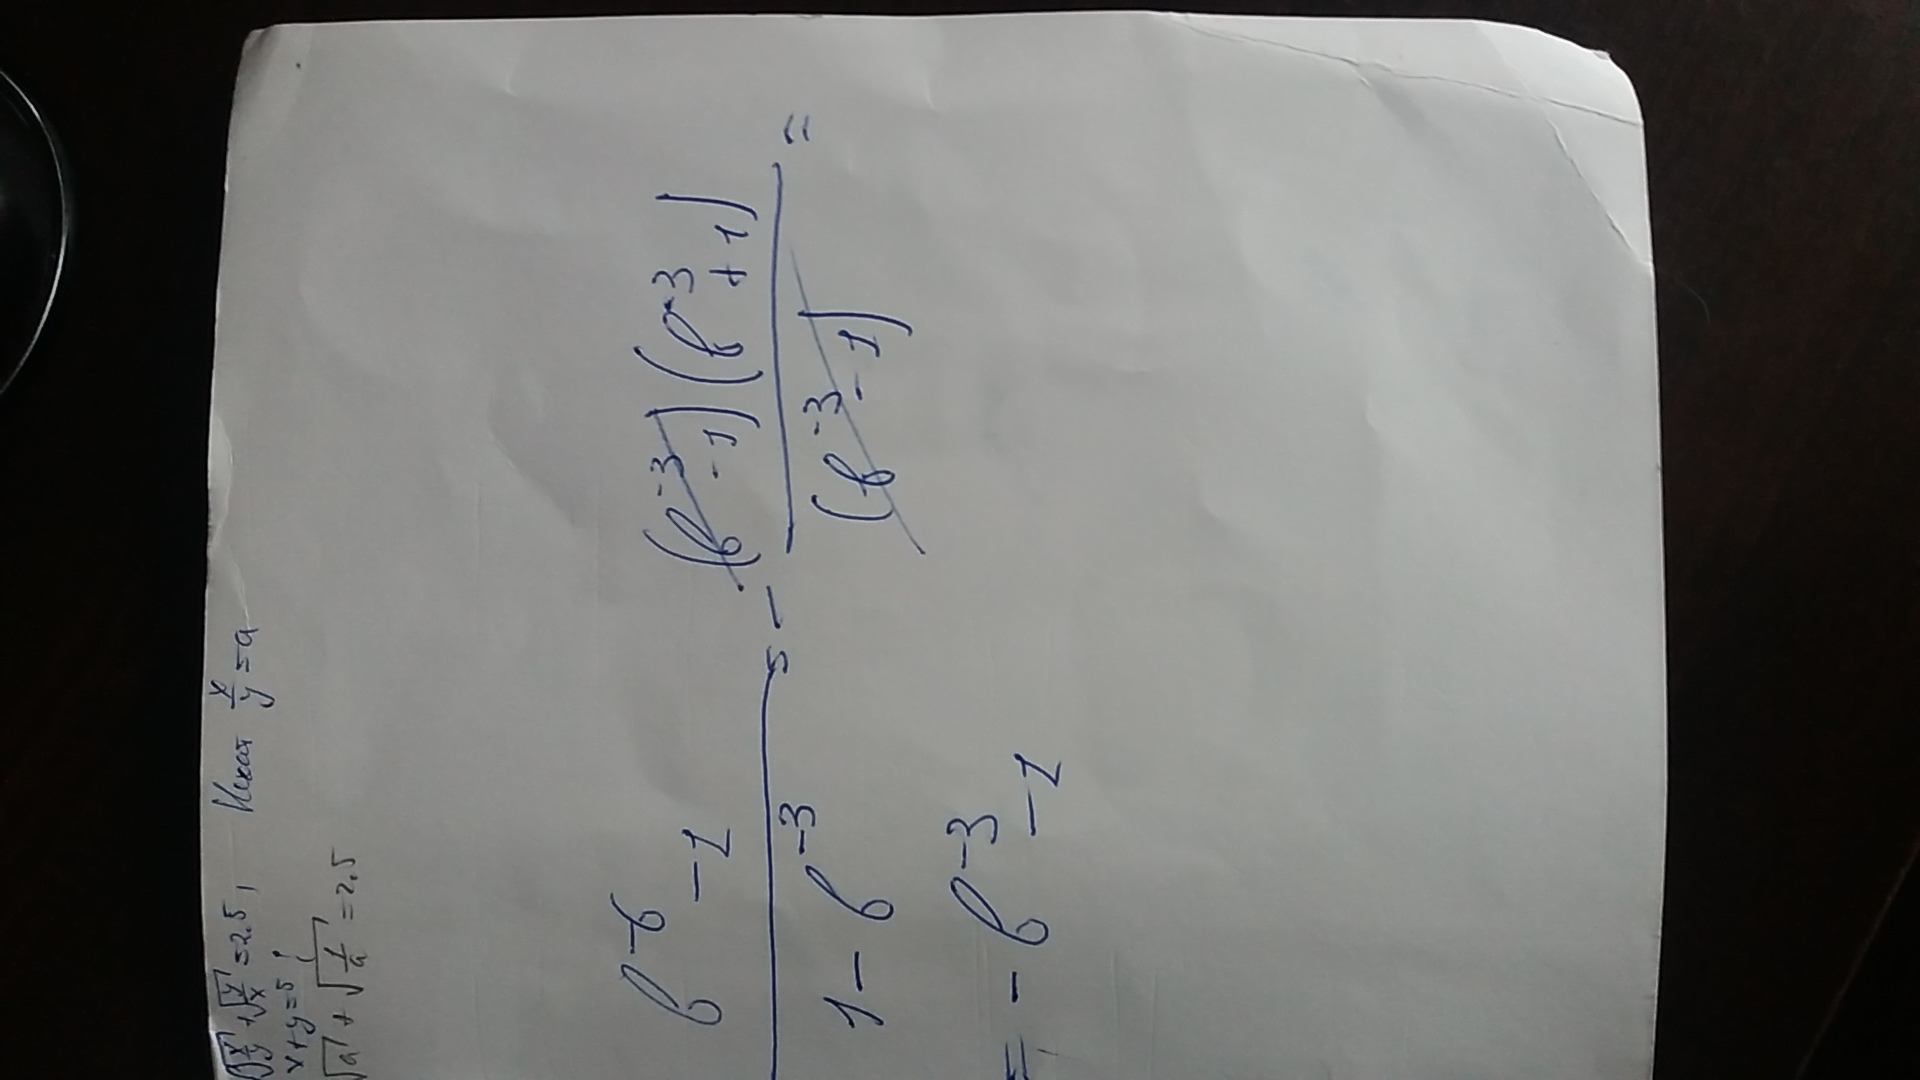 √x/y + √y/x = 2.5, Нехай x/y = a
x+y=5;
√a + √1/a = 2.5
(b⁻⁶ - 1)/(1 - b⁻³) = - (b⁻³ - 1)(b⁻³ + 1)/(b⁻³ - 1) =
= - b⁻³ - 1